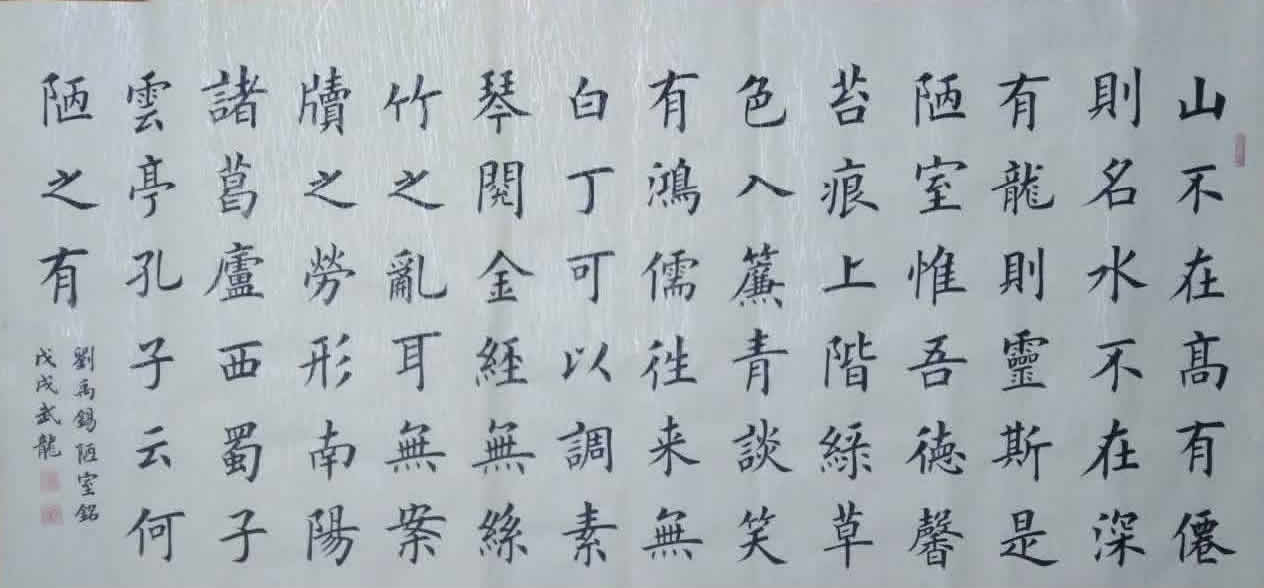 山不在高有僊
則名水不在深
有龍則靈斯是
陋室惟吾德馨
苔痕上階綠草
色入簾青談笑
有鴻儒往来無
白丁可以調素
琴閱金經無絲
竹之亂耳無案
牘之勞形南陽
諸葛廬西蜀子
雲亭孔子云何
陋之有
劉禹錫陋室銘
戊戌武龍